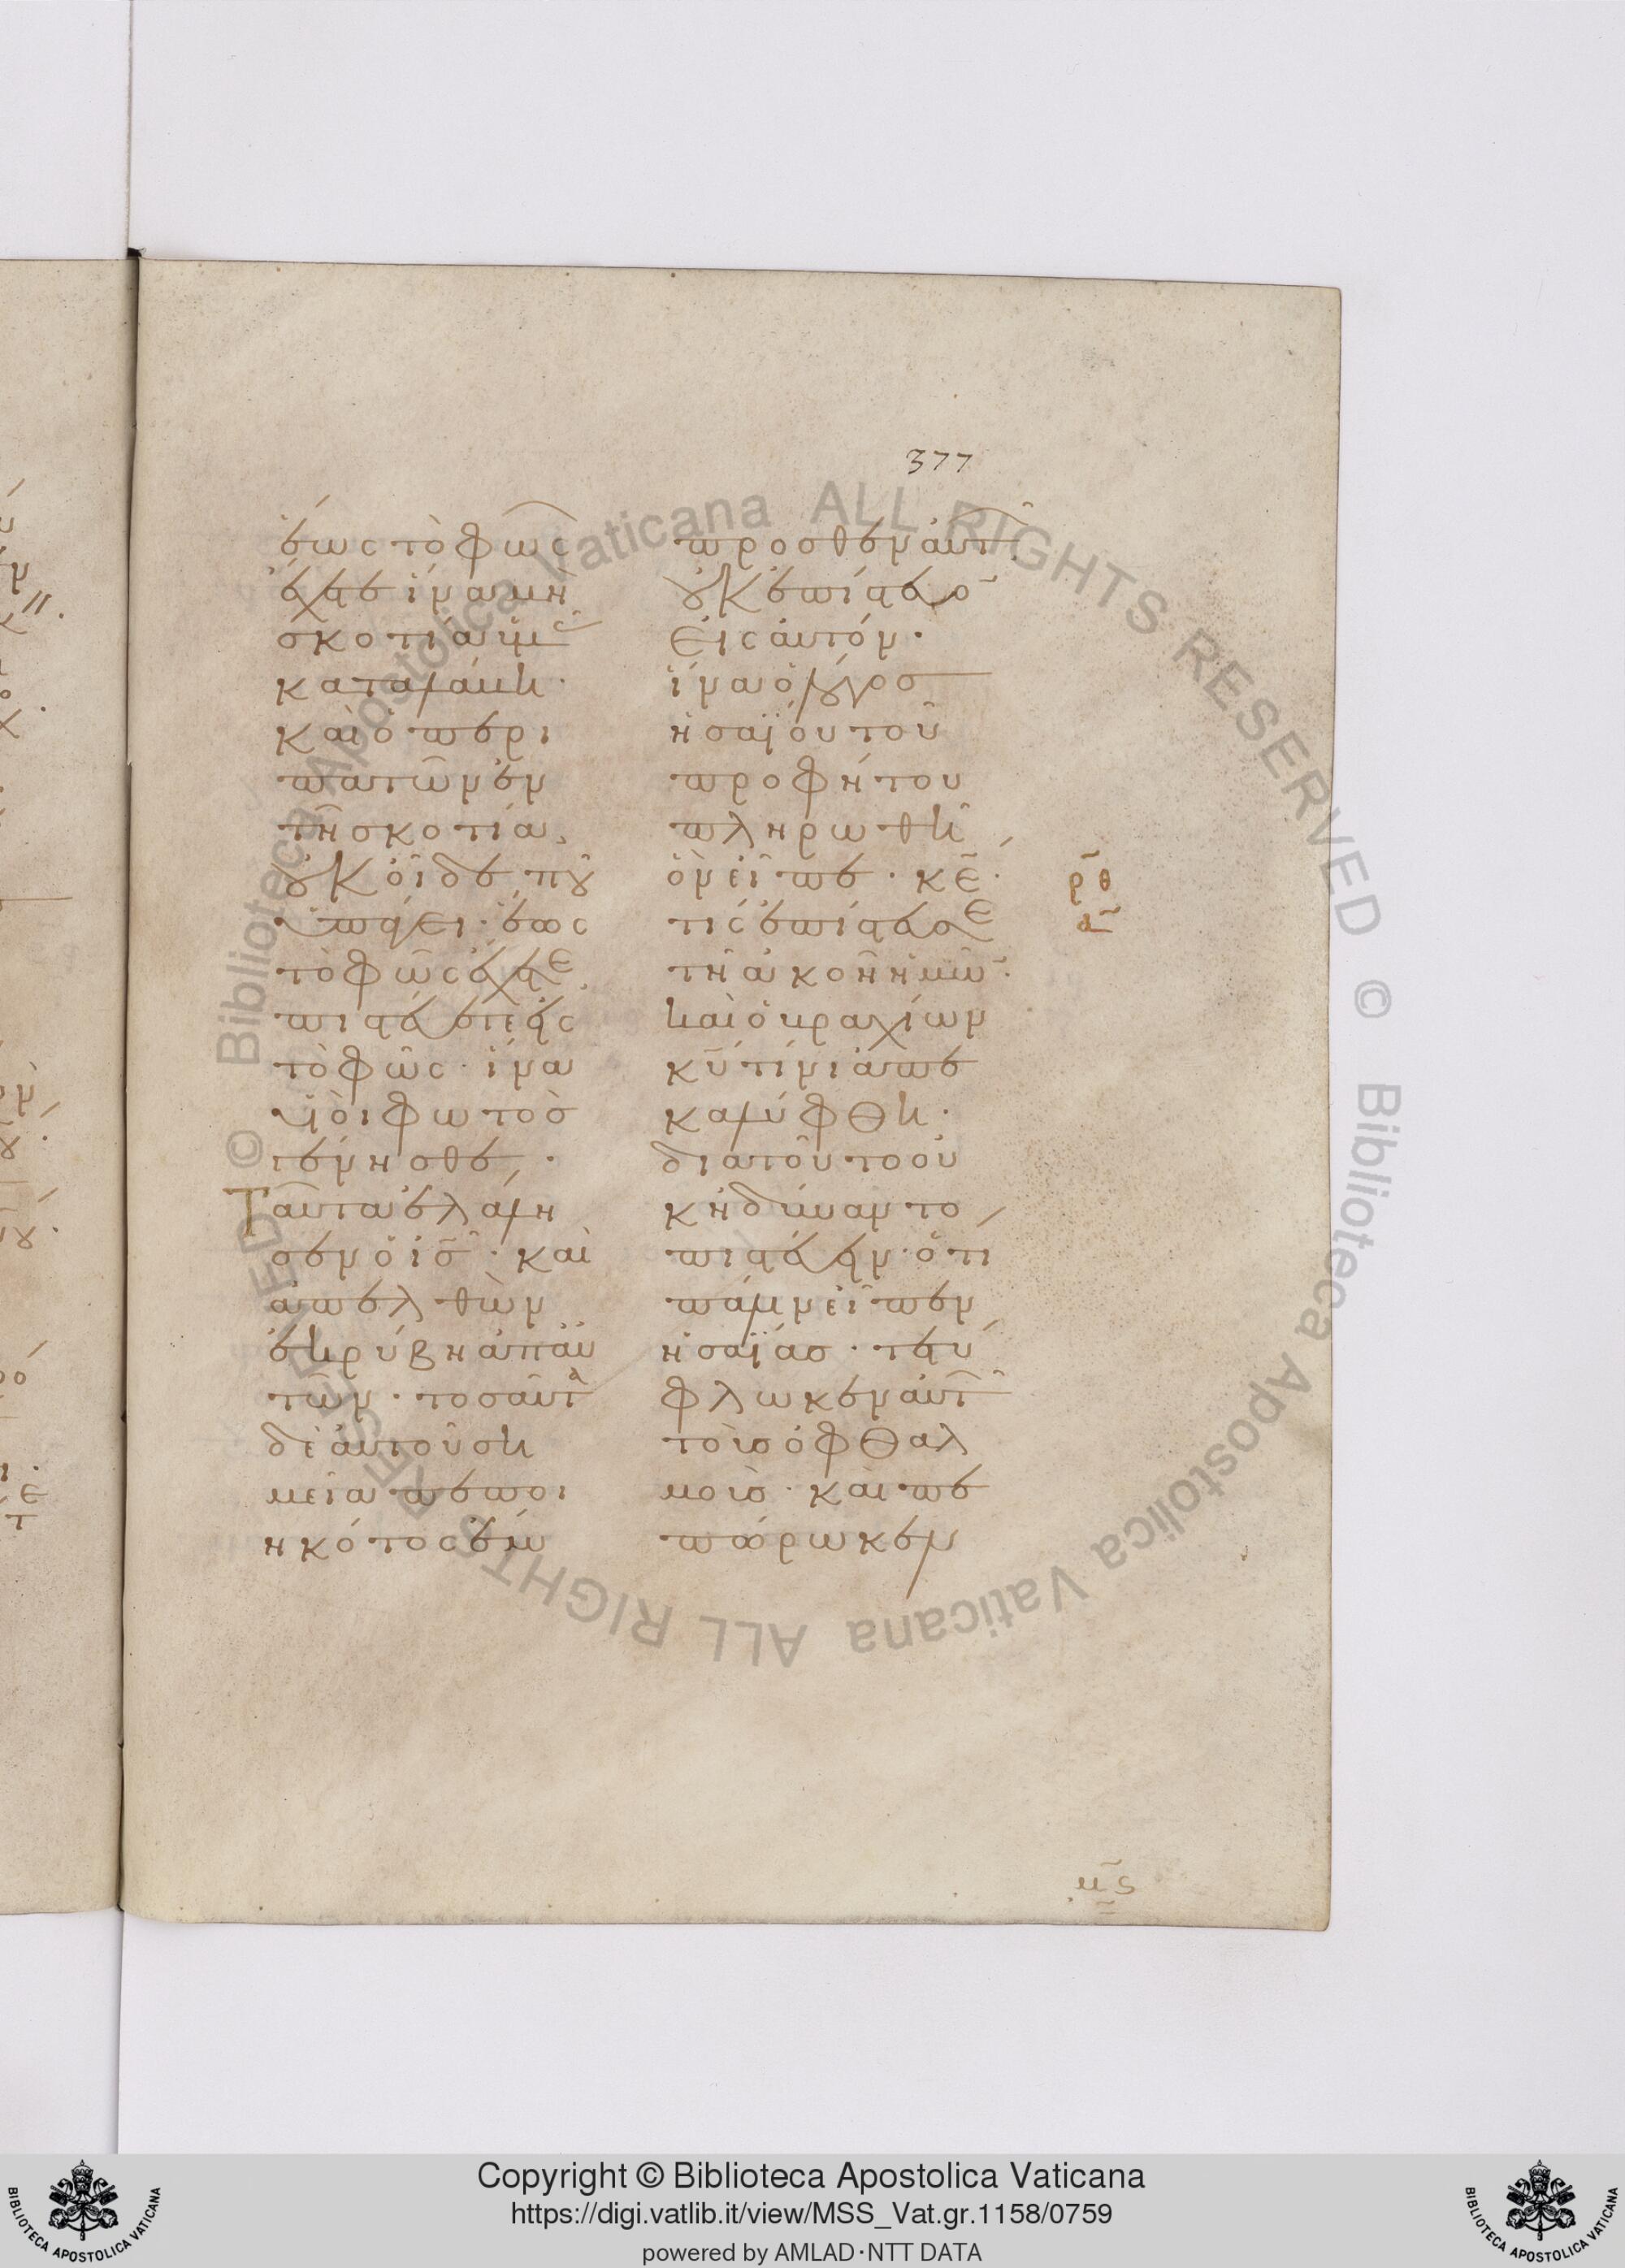 377
ἕως τὸ φῶς
ἔχετε ἵνα μὴ
σκοτία ὑμᾶς
καταλάβη·
καὶ ὁ περι
πατῶν ἐν
τῆ σκοτία,
οὐκ οἶδε ποῦ
ὑπάγει· ἕως
τὸ φῶς ἔχετε
πιστεύετε εἰς
τὸ φῶς· ἵνα
υἱοὶ φωτὸς
γένησθε·
Ταῦτα ἐλάλη
σεν ὁ ις· καὶ
ἀπελθὼν
ἐκρύβη ἀπ' αὐ
τῶν· τοσαῦτα
δὲ αὐτοῦ ση
μεῖα πεποι
ηκότος ἔμ
προσθεν αὐτῶν
οὐκ ἐπίστευον
εἰς αὐτόν·
ἵνα ὁ λόγος
ἡσαΐου τοῦ
προφήτου
πληρωθῆ
ὃν εἶπε· κε·
τίς ἐπίστευσε
τῆ ἀκοῆ ἡμῶν·
καὶ ὁ βραχίων
κυ τίνι ἀπε
καλύφθη·
διατοῦτο οὐ
κ ἠδύναντο
πιστεύειν· ὅτι
πάλιν εἶπεν
ἡσαΐας· τετύ
φλωκεν αὐτῶν
τοὺς ὀφθαλ
μοὺς· καὶ πε
πώρωκεν
ρθ
α
μς
Copyright © Biblioteca Apostolica Vaticana
https://digi.vatlib.it/view/MSS_Vat.gr.1158/0759
powered by AMLAD·NTT DATA
BIBLIOTECA APOSTOLICA VATICANA
BIBLIOTECA APOSTOLICA VATICANA
© Biblioteca Apostolica Vaticana ALL RIGHTS RESERVED © Biblioteca Apostolica Vaticana ALL RIGHTS RESERVED